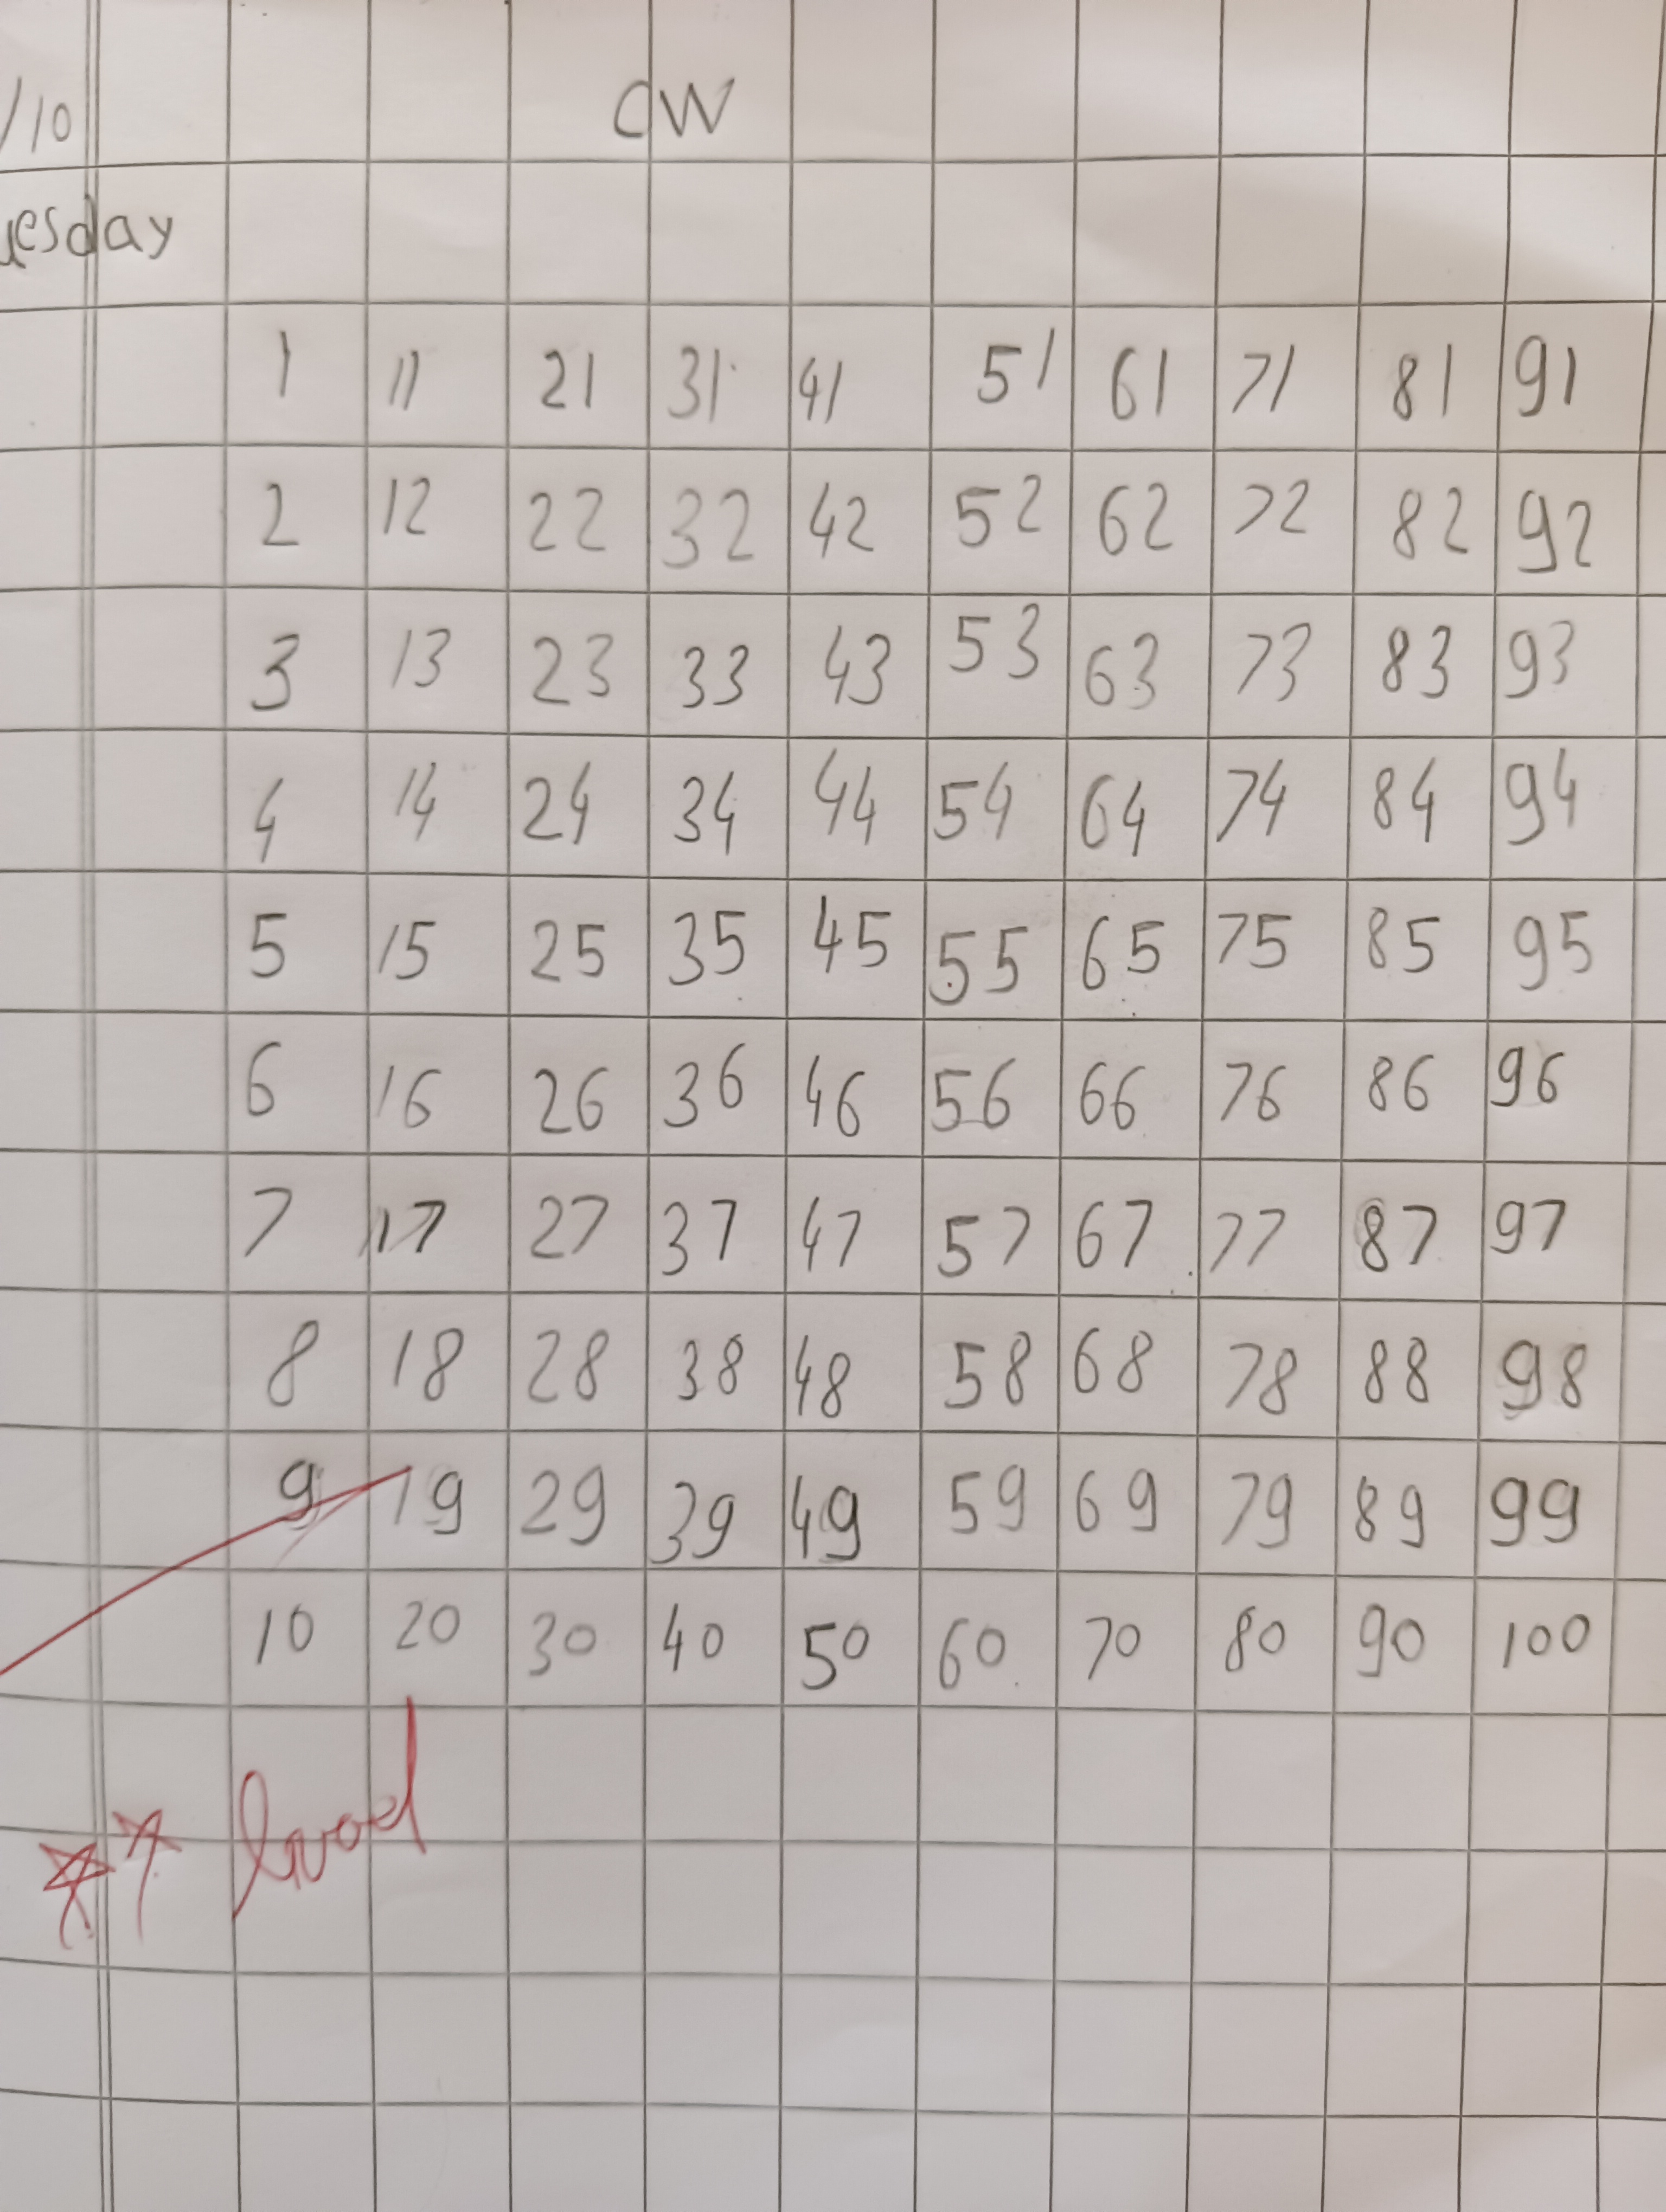 /10 CW
uesday
1 11 21 31 41 51 61 71 81 91
2 12 22 32 42 52 62 72 82 92
3 13 23 33 43 53 63 73 83 93
4 14 24 34 44 54 64 74 84 94
5 15 25 35 45 55 65 75 85 95
6 16 26 36 46 56 66 76 86 96
7 17 27 37 47 57 67 77 87 97
8 18 28 38 48 58 68 78 88 98
9 19 29 39 49 59 69 79 89 99
10 20 30 40 50 60 70 80 90 100
Good